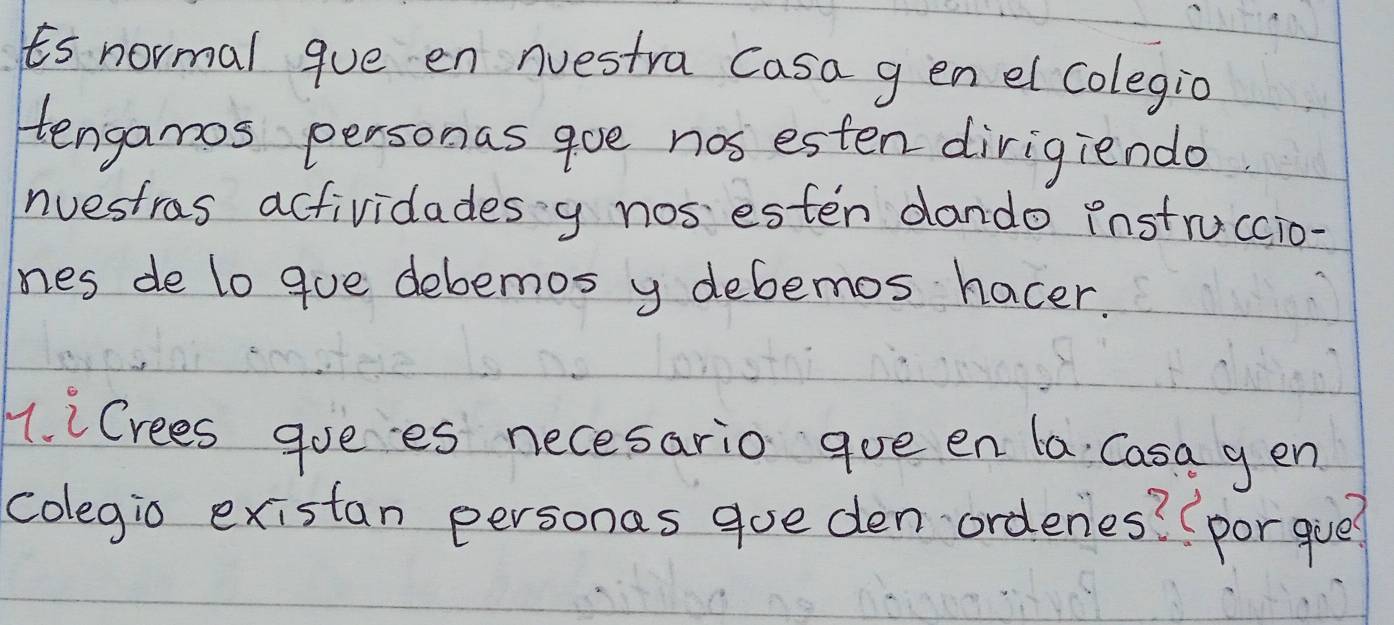 Es normal que en nuestra casa y en el colegio
tengamos personas que nos esten dirigiendo
nuestras actividades y nos estén dando instruccio-
nes de lo que debemos y debemos hacer.
1. ¿Crees que es necesario que en la casa y en
colegio existan personas que den ordenes? ¿por que?